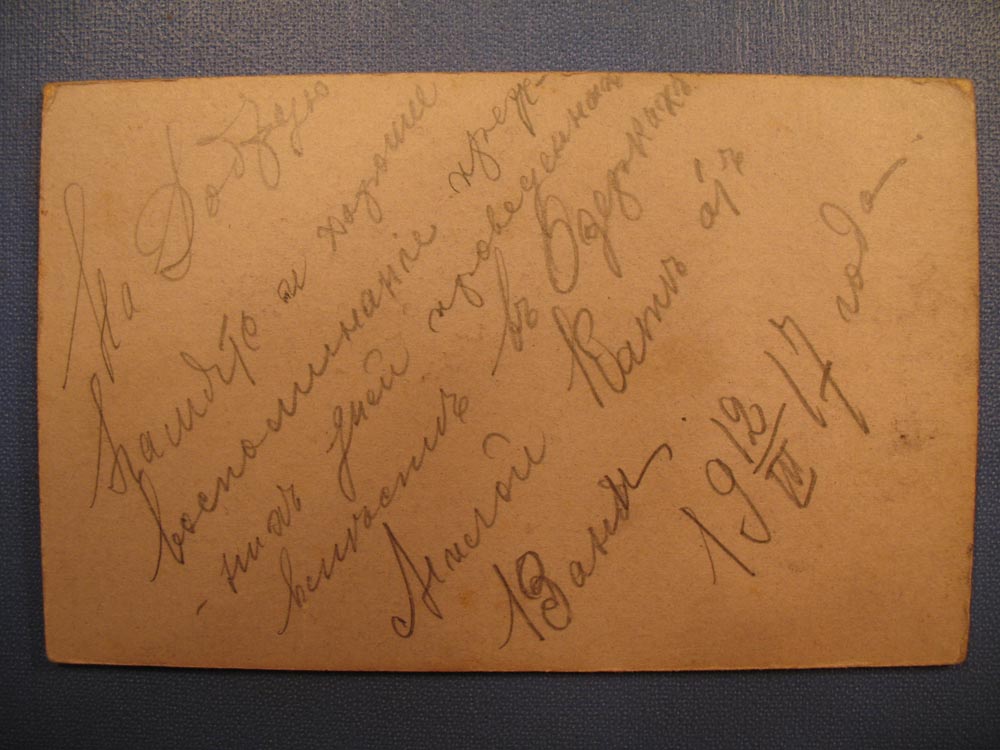 На Добрую
память и хорошее
воспоминание преж-
-нихъ дней проведенныхъ
вместѣ въ
Милой Катѣ отъ
Вани.
19 12/III 17 года